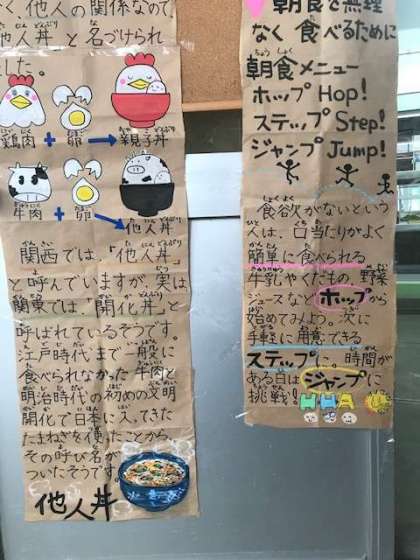 く他人の関係なので
他人丼と名づけられ
した。
鶏肉 + 卵 → 親子丼
牛肉 + 卵 → 他人丼
関西では、「他人丼」
と呼んでいますが、実は
関東では、「開化丼」と
呼ばれているそうです。
江戸時代まで一般に
食べられなかった牛肉と
明治時代の初めの文明
開化で日本に入ってきた
たまねぎを使ったことから、
その呼び名が
ついたそうです。
他人丼
朝食で無理
なく食べるために
朝食メニュー
ホップ Hop!
ステップ Step!
ジャンプ Jump!
食欲がないという
人は、口当たりがよく
簡単に食べられる
牛乳やくだもの、野菜
ジュースなどホップから
始めてみよう。次に
手軽に用意できる
ステップに。時間が
ある日はジャンプに
挑戦!